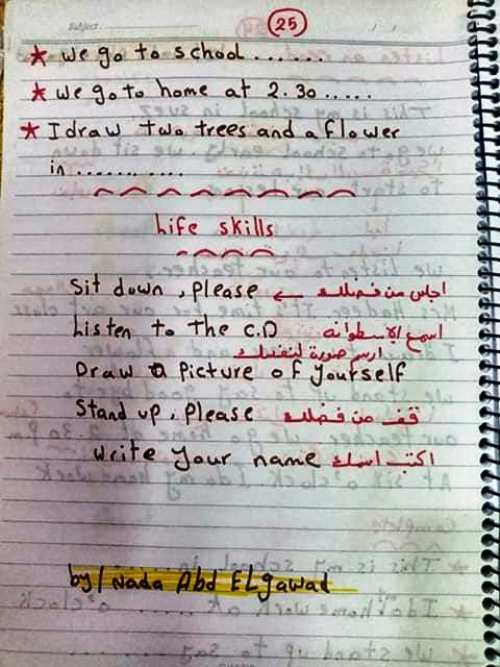 Subject
25
* We go to school ......
* we go to home at 2.30 .....
* I draw two trees and a flower
in ...........
Life skills
Sit down , please ← اجلس من فضلك
Listen to the C.D اسمع الاسطوانه
ارسم صورة لنفسك
Draw a picture of yourself
Stand up , please قف من فضلك
write your name اكتب اسمك
by/ Nada Abd ELgawad